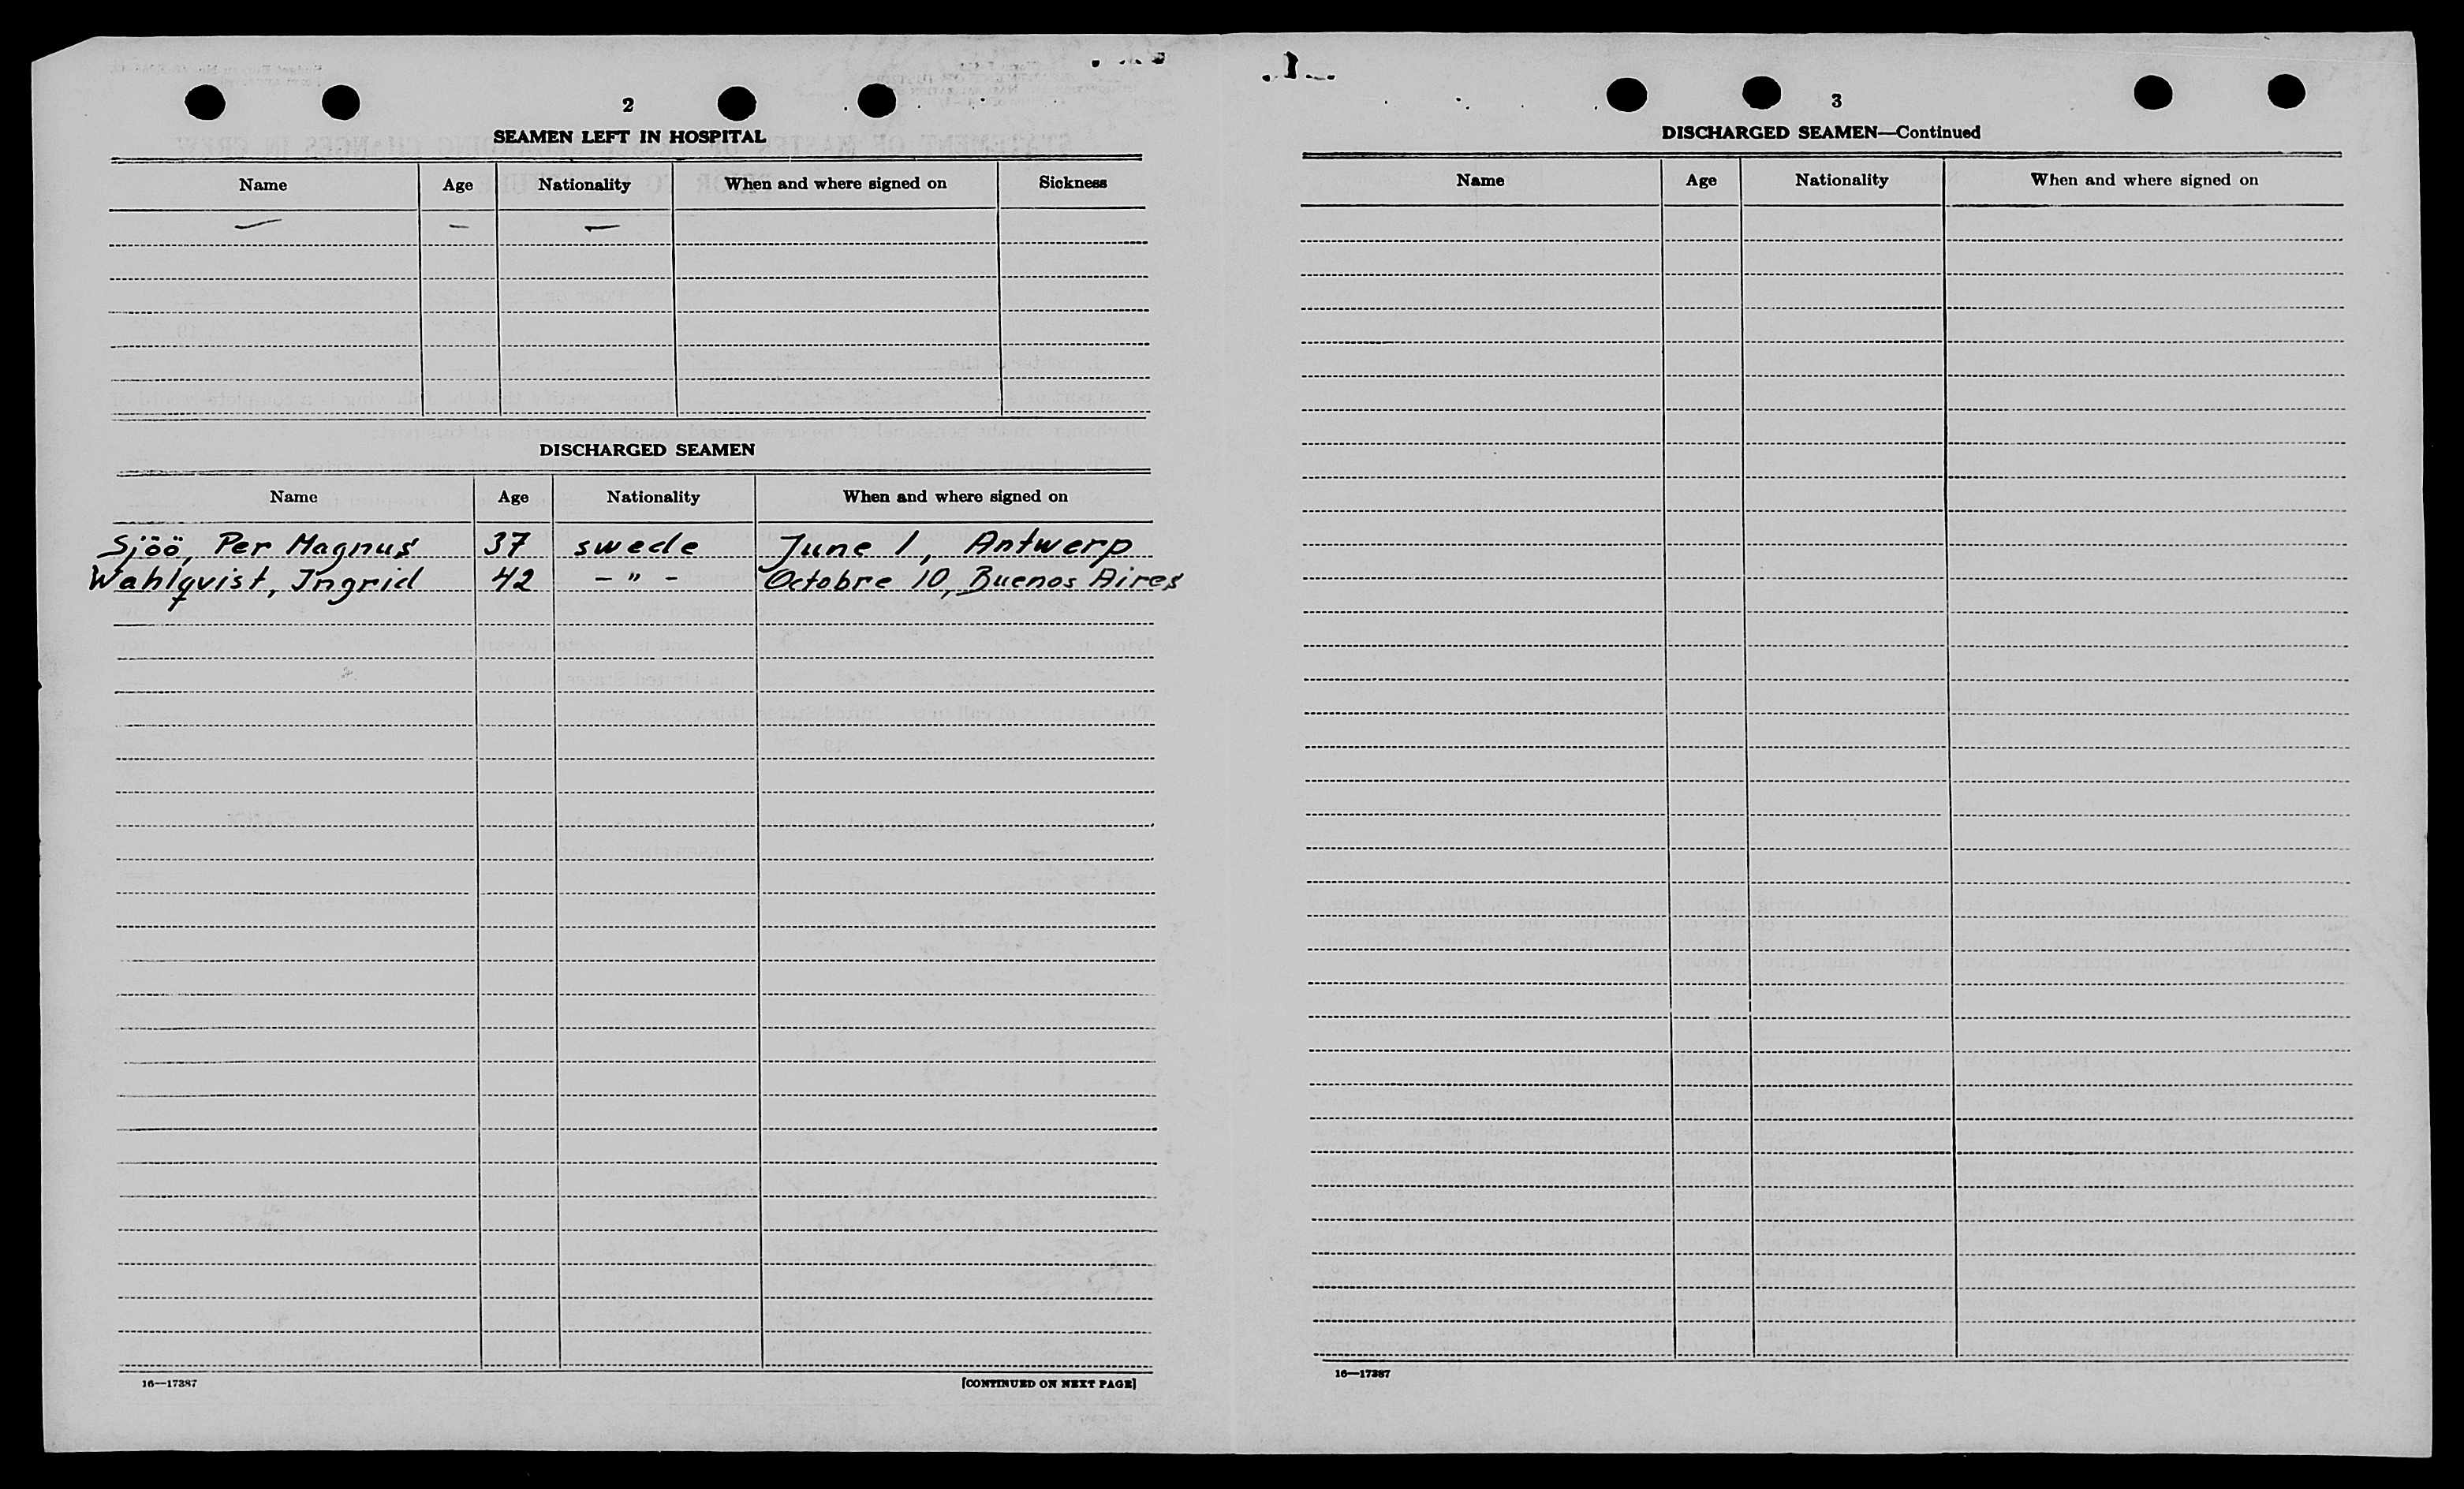 2
SEAMEN LEFT IN HOSPITAL
Name Age Nationality When and where signed on Sickness
— — —
DISCHARGED SEAMEN
Name Age Nationality When and where signed on
Sjöö, Per Magnus 37 swede June 1, Antwerp
Wahlqvist, Ingrid 42 - " - Octobre 10, Buenos Aires
16—17387
[CONTINUED ON NEXT PAGE]
3
DISCHARGED SEAMEN—Continued
Name Age Nationality When and where signed on
16—17387